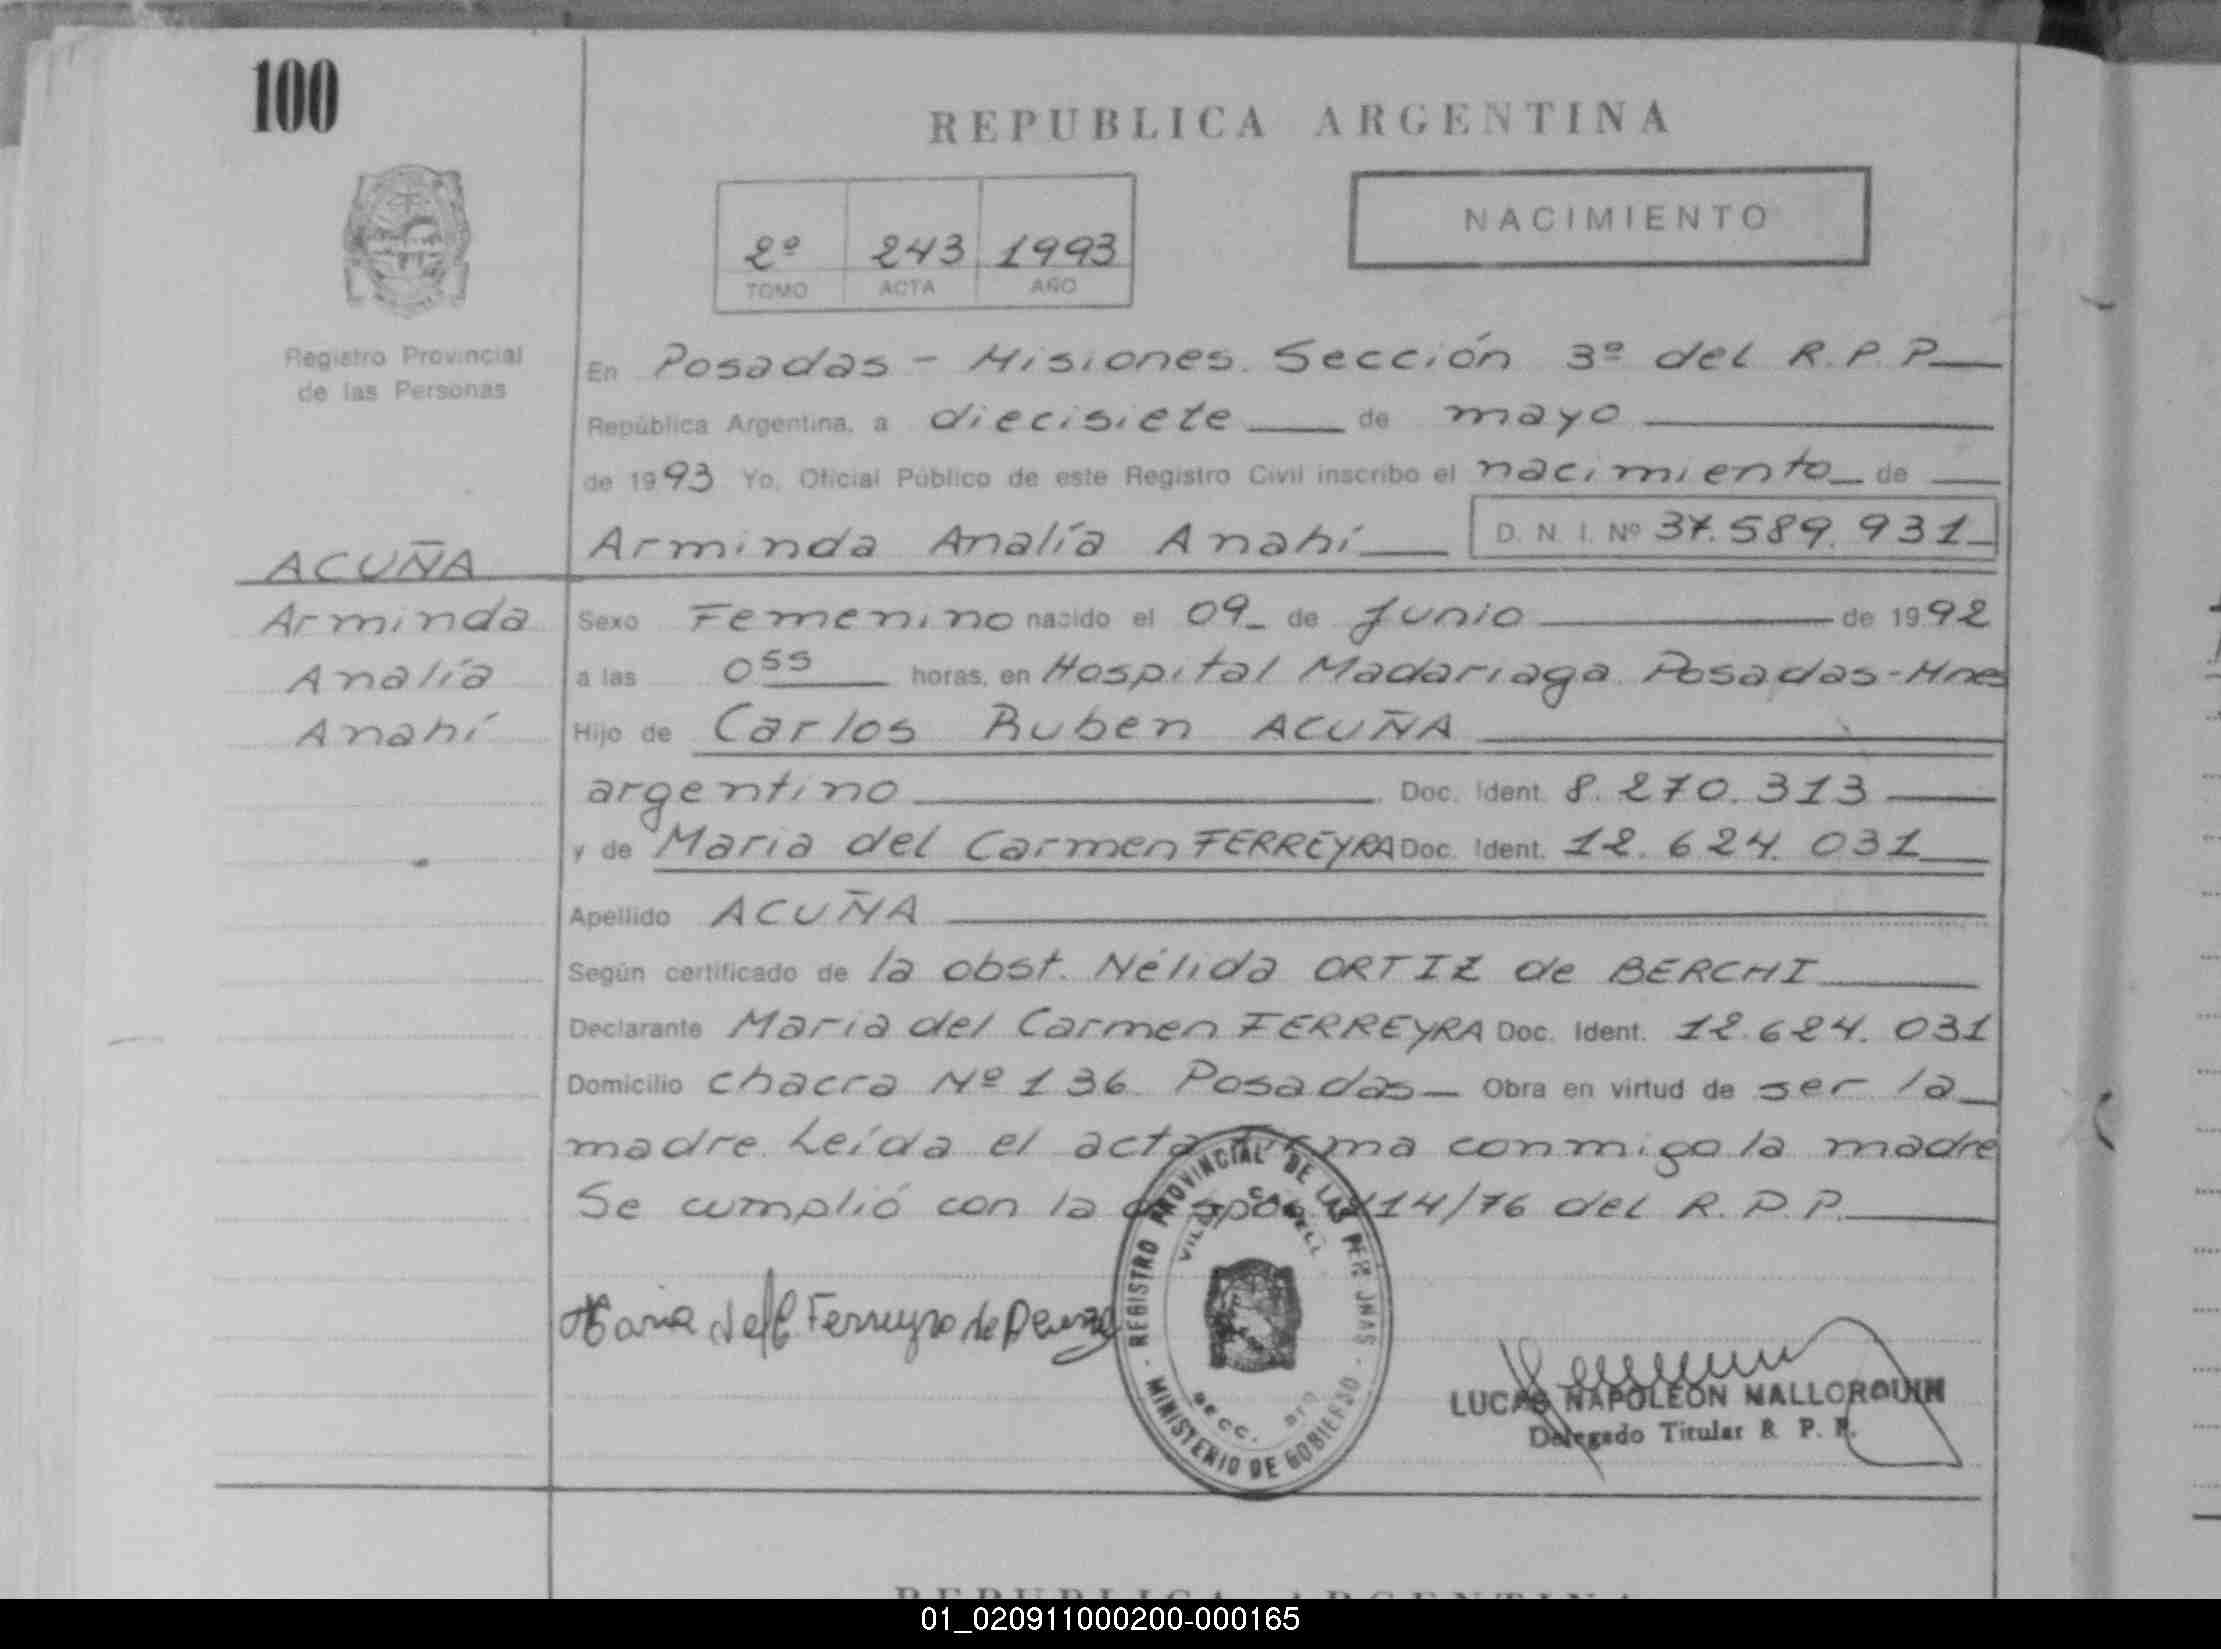 100
REPUBLICA ARGENTINA
NACIMIENTO
2º 243 1993
TOMO ACTA AÑO
Registro Provincial
de las Personas
En Posadas - Misiones. Sección 3º del R.P.P
República Argentina, a diecisiete de mayo
de 1993 Yo, Oficial Público de este Registro Civil inscribo el nacimiento de
Arminda Analía Anahí D. N. I. Nº 37.589.931
ACUÑA
Arminda
Analía
Anahí
Sexo Femenino nacido el 09 de Junio de 1992
a las 0 55 horas, en Hospital Madariaga. Posadas-Mnes
Hijo de Carlos Ruben ACUÑA
argentino Doc. Ident. 8.270.313
y de Maria del Carmen FERREYRA Doc. Ident. 12.624.031
Apellido ACUÑA
Según certificado de la obst. Nélida ORTIZ de BERCHI
Declarante Maria del Carmen FERREYRA Doc. Ident. 12.624.031
Domicilio chacra Nº 136 Posadas Obra en virtud de ser la
madre. Leída el acta firma conmigo la madre
Se cumplió con la 14/76 del R.P.P.
REGISTRO PROVINCIAL DE LAS PERSONAS
VILLA CABELL
SECC.
MINISTERIO DE GOBIERNO
Maria del C. Ferreyra de
LUCAS NAPOLEON MALLORQUIN
Delegado Titular R. P. P.
REPUBLICA ARGENTINA
01_020911000200-000165